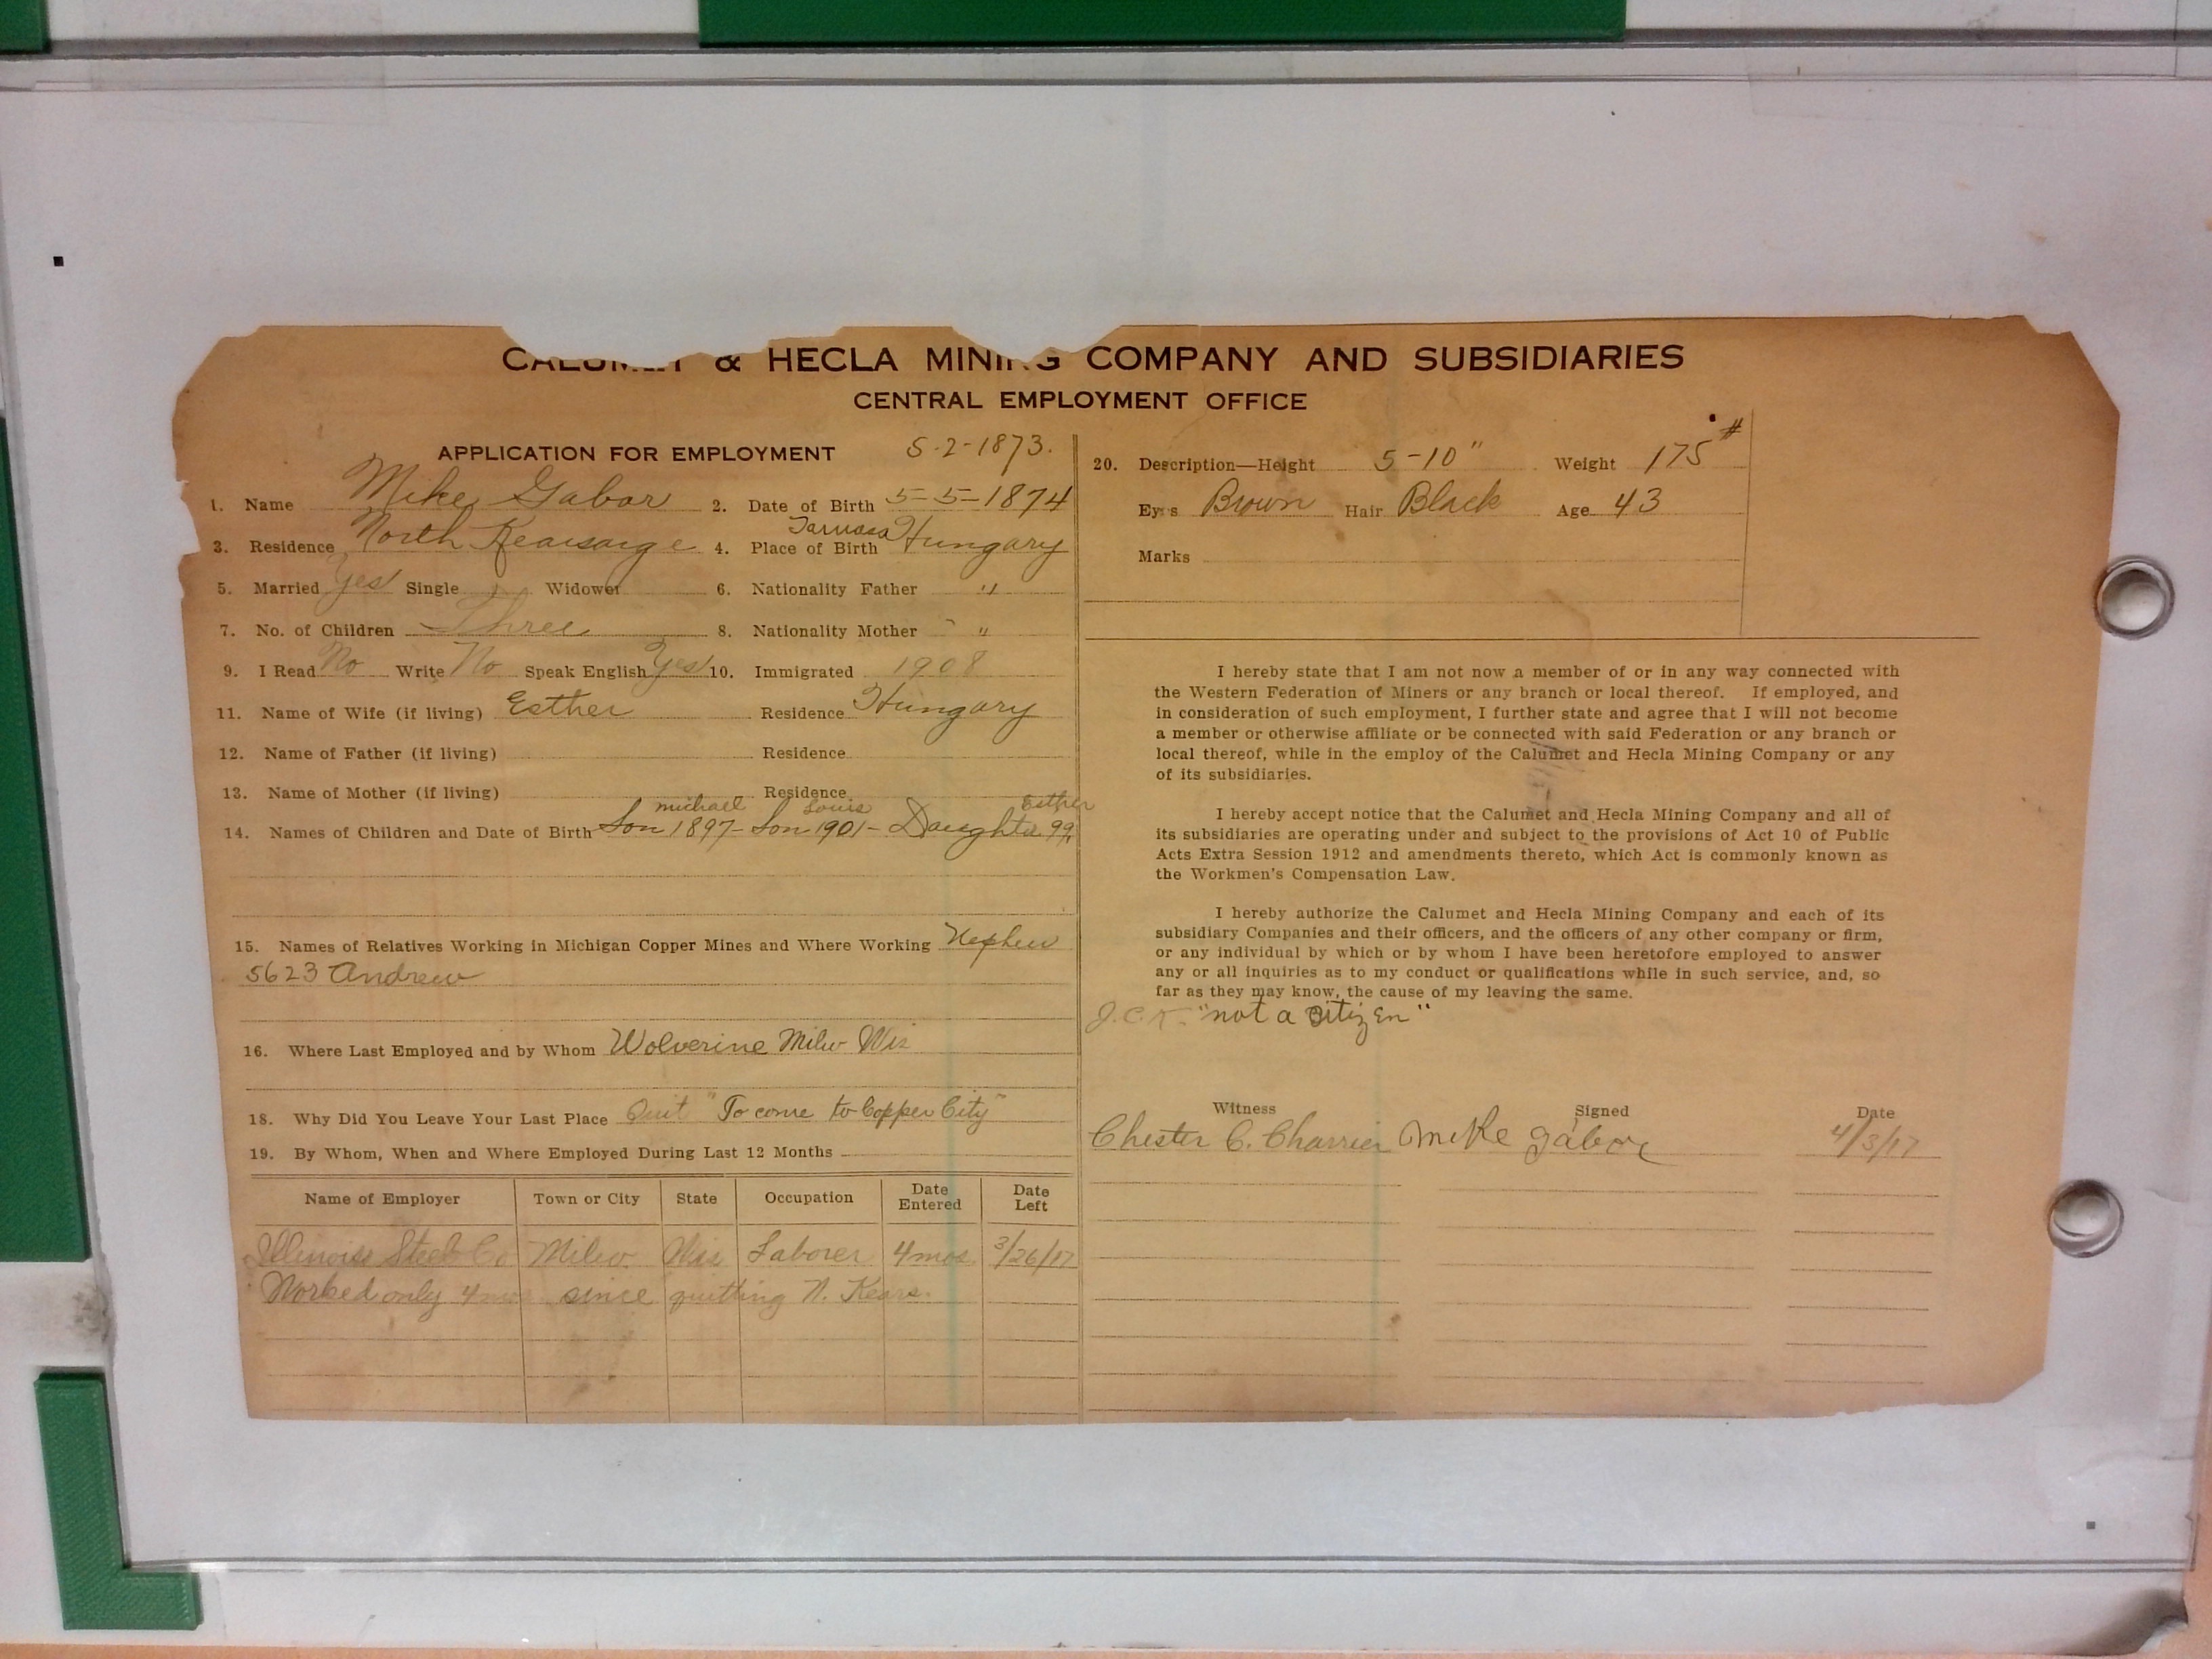 CALUMET & HECLA MINING COMPANY AND SUBSIDIARIES
CENTRAL EMPLOYMENT OFFICE
APPLICATION FOR EMPLOYMENT 5-2-1873.
1. Name Mike Gabor 2. Date of Birth 5-5-1874
3. Residence North Kearsarge 4. Place of Birth Hungary
5. Married Yes Single Widower 6. Nationality Father "
7. No. of Children Three 8. Nationality Mother "
9. I Read No Write No Speak English Yes 10. Immigrated 1908
11. Name of Wife (if living) Esther Residence Hungary
12. Name of Father (if living) Residence
13. Name of Mother (if living) Residence
michael Louis Esther
14. Names of Children and Date of Birth Son 1897- Son 1901- Daughter 99
15. Names of Relatives Working in Michigan Copper Mines and Where Working Nephew
5623 Andrew
16. Where Last Employed and by Whom Wolverine Milw Wis
18. Why Did You Leave Your Last Place Quit "To come to Copper City"
19. By Whom, When and Where Employed During Last 12 Months
Name of Employer Town or City State Occupation Date Entered Date Left
Illinois Steel Co Milw. Wis Laborer 4 mos. 3/26/17
Worked only 4 mos since quitting N. Kears.
20. Description—Height 5-10" Weight 175#
Eyes Brown Hair Black Age 43
Marks
I hereby state that I am not now a member of or in any way connected with
the Western Federation of Miners or any branch or local thereof. If employed, and
in consideration of such employment, I further state and agree that I will not become
a member or otherwise affiliate or be connected with said Federation or any branch or
local thereof, while in the employ of the Calumet and Hecla Mining Company or any
of its subsidiaries.
I hereby accept notice that the Calumet and Hecla Mining Company and all of
its subsidiaries are operating under and subject to the provisions of Act 10 of Public
Acts Extra Session 1912 and amendments thereto, which Act is commonly known as
the Workmen's Compensation Law.
I hereby authorize the Calumet and Hecla Mining Company and each of its
subsidiary Companies and their officers, and the officers of any other company or firm,
or any individual by which or by whom I have been heretofore employed to answer
any or all inquiries as to my conduct or qualifications while in such service, and, so
far as they may know, the cause of my leaving the same.
"not a citizen"
Witness Signed Date
Chester C. Charrier Mike gábor 4/3/17